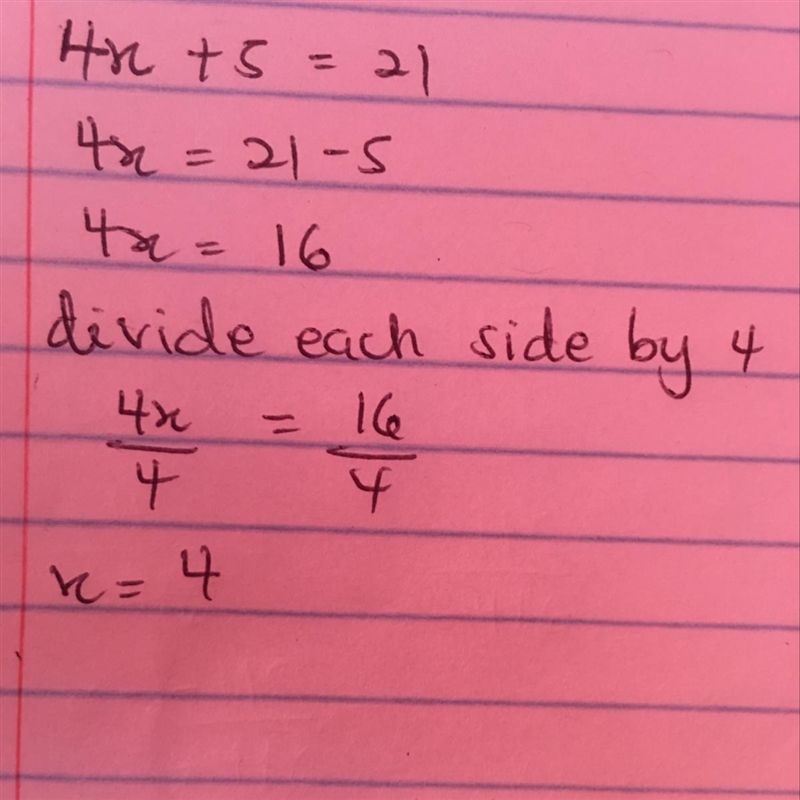 4x + 5 = 21
4x = 21 - 5
4x = 16
divide each side by 4
4x/4 = 16/4
x = 4